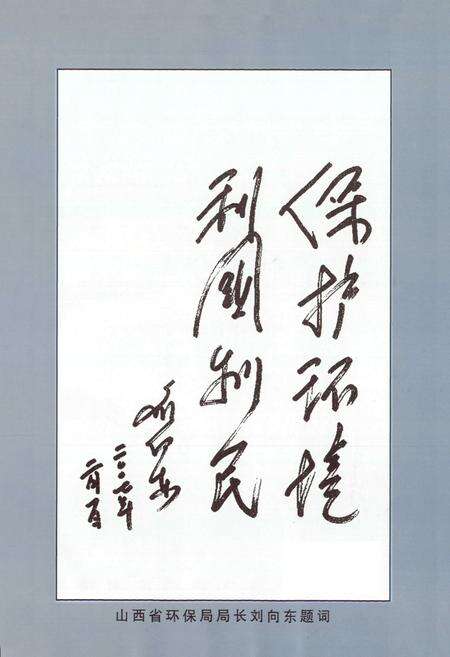 保护环境
利国利民
刘向东
二〇〇七年
二月一日
山西省环保局局长刘向东题词